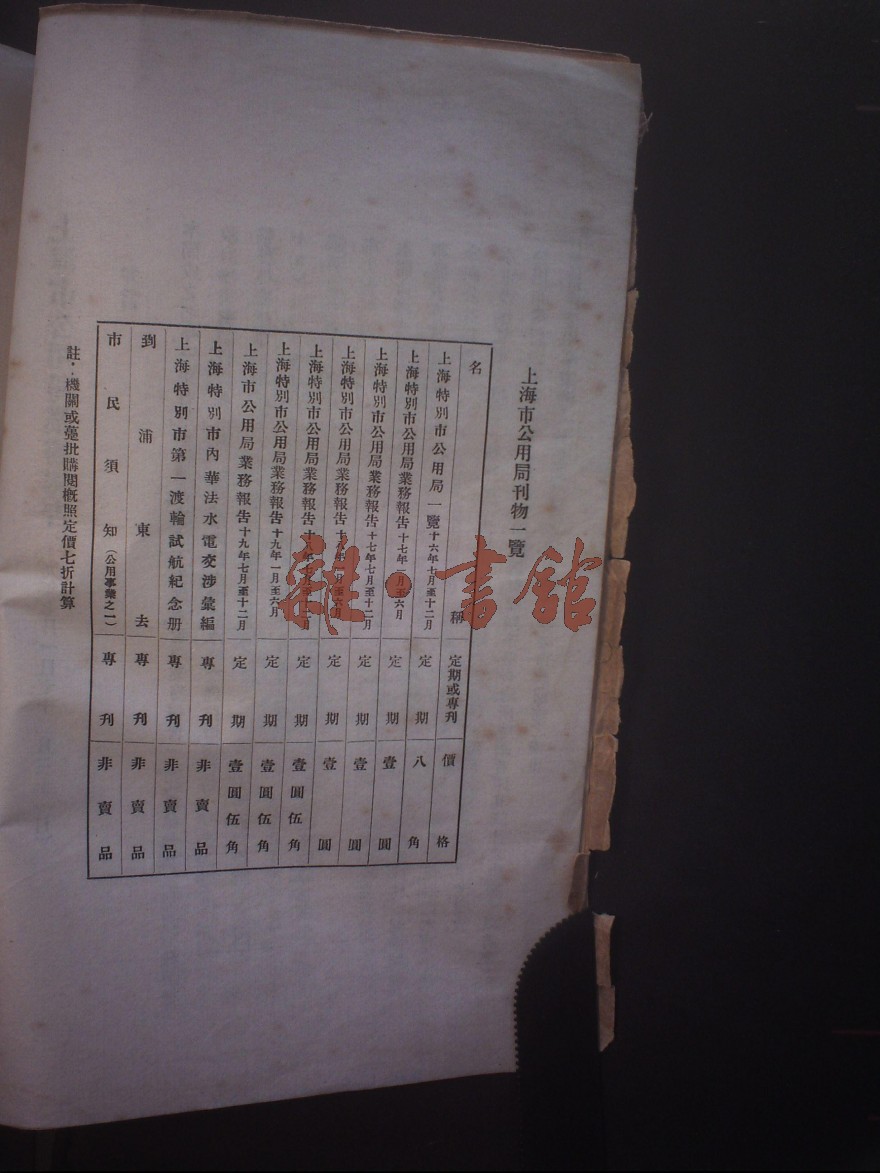 上海市公用局刊物一覽
名稱 定期或專刊 價格
上海特別市公用局一覽 十六年七月至十二月 定期 八角
上海特別市公用局業務報告 十七年一月至六月 定期 壹圓
上海特別市公用局業務報告 十七年七月至十二月 定期 壹圓
上海特別市公用局業務報告 十八年一月至六月 定期 壹圓
上海特別市公用局業務報告 十八年七月至十二月 定期 壹圓伍角
上海特別市公用局業務報告 十九年一月至六月 定期 壹圓伍角
上海市公用局業務報告 十九年七月至十二月 定期 壹圓伍角
上海特別市內華法水電交涉彙編 專刊 非賣品
上海特別市第一渡輪試航紀念册 專刊 非賣品
到浦東去 專刊 非賣品
市民須知(公用事業之一) 專刊 非賣品
註:機關或躉批購閱概照定價七折計算
雜·書館